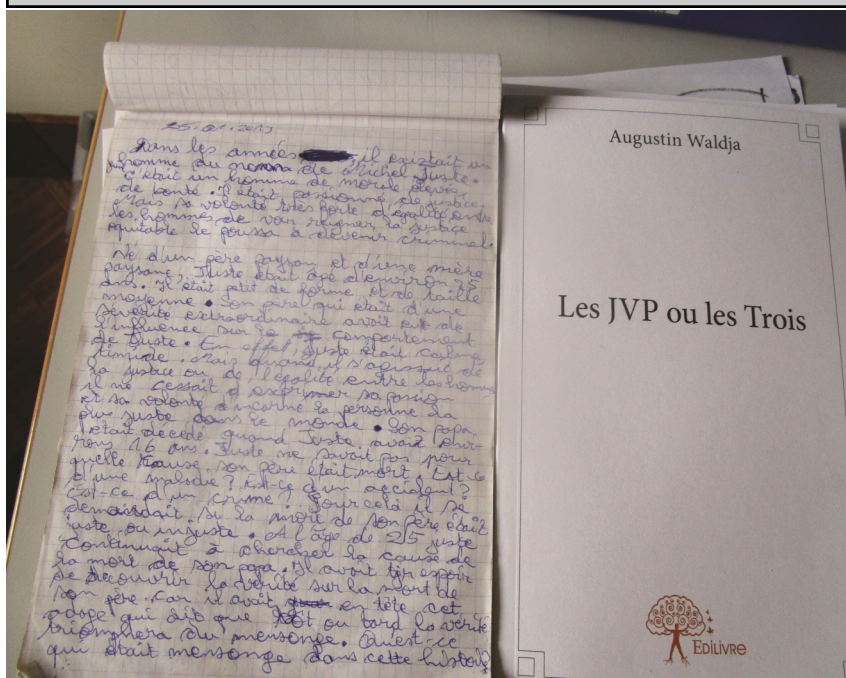 25.01.2013
Dans les années il existait un
jeune homme du nom de Michel Juste.
C'était un homme de morale élevée,
de bonté. Il était passionné de justice.
Mais sa volonté très forte d'égalité entre
les hommes de voir régner la justice
équitable le poussa à devenir criminel.
Né d'un père paysan et d'une mère
paysane, Juste était âgé d'environ 25
ans. Il était petit de forme et de taille
moyenne. Son père qui était d'une
sévérité extraordinaire avait eu de
l'influence sur le comportement
de Juste. En effet, Juste était calme
timide. Mais quand il s'agissait de
la justice ou de l'égalité entre les hommes
il ne cessait d'exprimer sa passion
et sa volonté d'incarné la personne la
plus juste dans le monde. Son papa
était décédé quand Juste avait envi-
rons 16 ans. Juste ne savait pas pour
quelle cause son père était mort. Est-ce
d'une maladie? Est-ce d'un accident?
Est-ce d'un crime? Pour cela il se
demandait si la mort de son père était
juste ou injuste. A l'âge de 25 juste
continuait à chercher la cause de
la mort de son papa. Il avait tjr espoir
de découvrir la vérité sur la mort de
son père car il avait en tête cet
adage qui dit que tôt ou tard la vérité
triomphera du mensonge. Qu'est-ce
qui était mensonge dans cette histoire?
Augustin Waldja
Les JVP ou les Trois
EDILIVRE